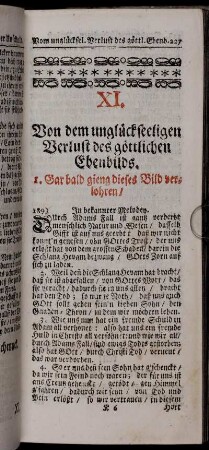 Vom unglücksel. Verlust des göttl. Ebenb. 227
XI.
Von dem unglückseeligen
Verlust des göttlichen
Ebenbilds.
1. Gar bald gieng dieses Bild ver-
lohren/
In bekannter Melodey.
Durch Adams Fall ist gantz verderbt
menschlich Natur und Wesen, dasselb
Gifft ist auf uns geerbt, daß wir nicht
konnt'n genesen, ohn GOttes Trost, der uns
erlöst hat von dem grossen Schaden, darein die
Schlang Hevam bezwang, GOttes Zorn auf
sich zu laden.
2. Weil denn die Schlang Hevam hat bracht,
daß sie ist abgefallen, von GOttes Wort,
sie veracht, dadurch sie in uns allen bracht
hat den Tod; so war je Noth, daß uns auch
GOtt solt geben sein'n lieben Sohn, den
Gnaden-Thron, in dem wir möchten leben.
3. Wie uns nun hat ein fremde Schuld in
Adam all verhönet: also hat uns ein fremde
Huld in Christo all versöhnt: und wie wir all,
durch Adams Fall, sind ewigs Todes gstorben:
also hat GOtt, durch Christi Tod, verneut,
das war verdorben.
4. So er uns denn sein Sohn hat gschenckt,
da wir sein Feind noch waren, der für uns ist
ans Creutz gehenckt, getödt, gen Himmel
gfahren, dadurch wir seyn von Tod und
Pein erlößt, so wir vertrauen, in diesem
K 6
Hort